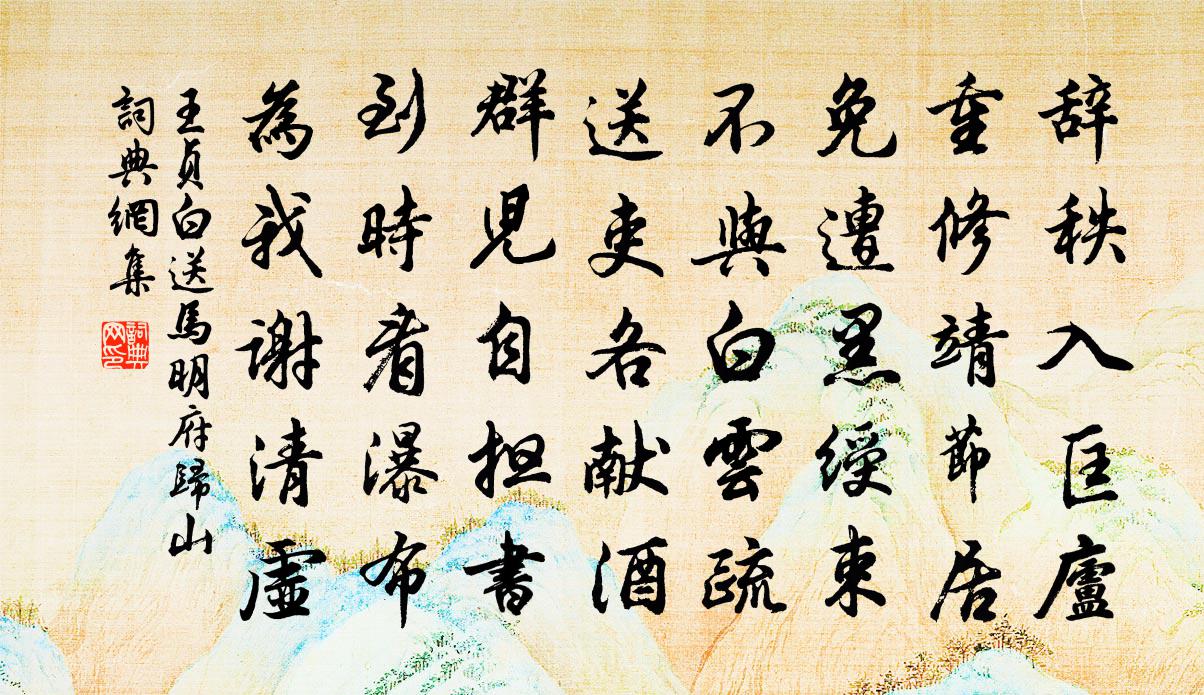 辞秩入匡廬
重修靖節居
免遭黑綬束
不與白雲疏
送吏各献酒
群児自担書
到時看瀑布
為我謝清虛
王貞白送馬明府歸山
詞典網集
詞典
网印